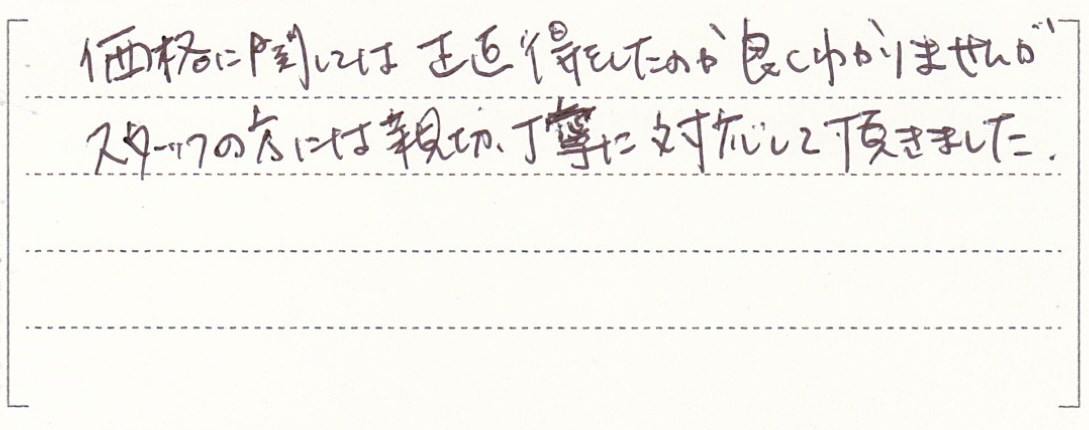 価格に関しては正直得をしたのか良くわかりませんが
スタッフの方には親切、丁寧に対応して頂きました.